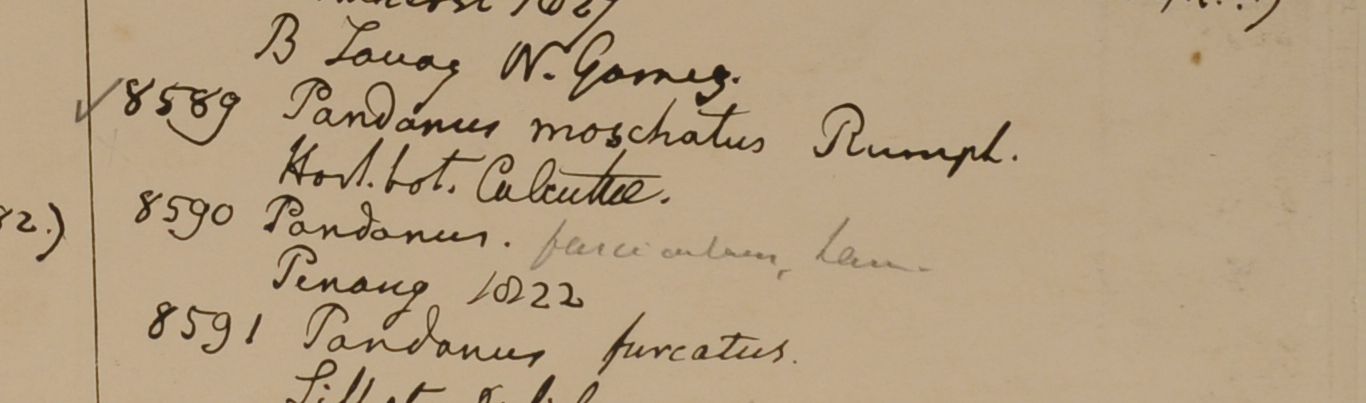 1827
B Tavoy W. Gomez.
8589 Pandanus moschatus Rumph.
Hort. bot. Calcuttae.
82.) 8590 Pandanus. fascicularis, Lam.
Penang 1822
8591 Pandanus furcatus.